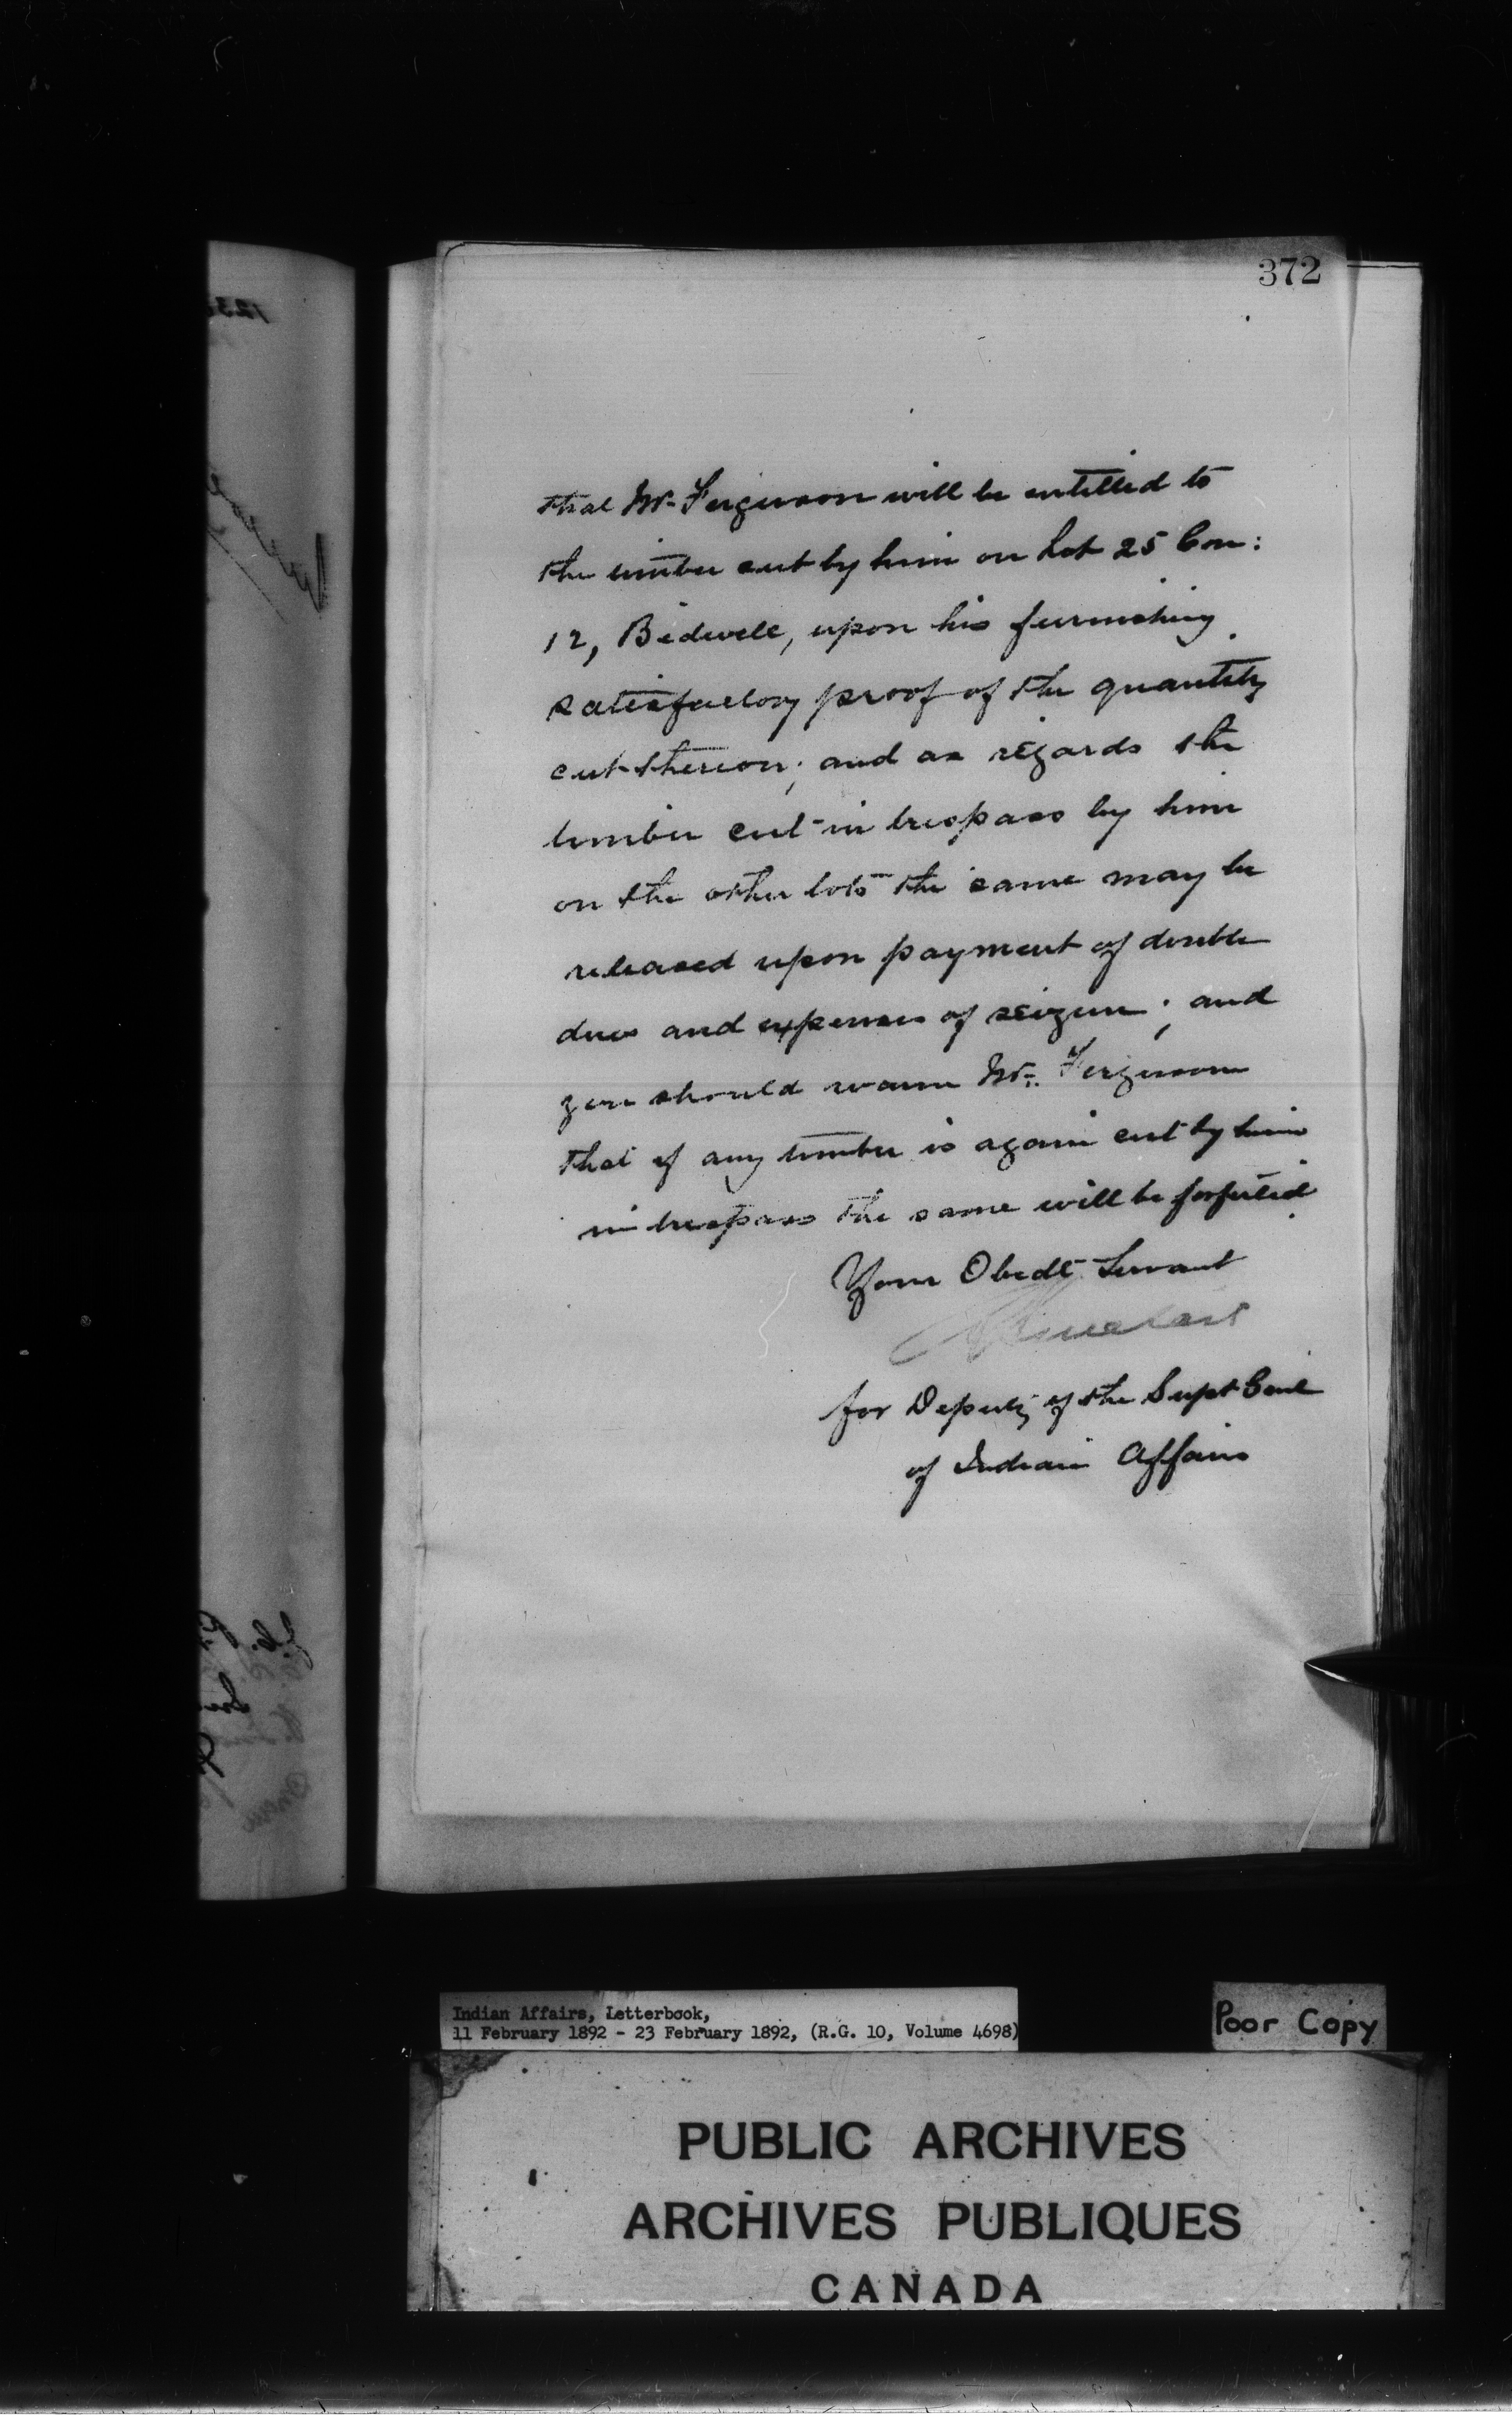 372
that Mr. Ferguson will be entitled to
the timber cut by him on Lot 25 Con:
12, Bidwell, upon his furnishing
satisfactory proof of the quantity
cut thereon; and as regards the
timber cut in trespass by him
on the other lots the same may be
released upon payment of double
dues and expenses of seizure; and
you should warn Mr. Ferguson
that if any timber is again cut by him
in trespass the same will be forfeited.
Your Obedt Servant
for Deputy of the Supt Genl
of Indian Affairs
Indian Affairs, Letterbook,
11 February 1892 - 23 February 1892, (R.G. 10, Volume 4698)
Poor Copy
PUBLIC ARCHIVES
ARCHIVES PUBLIQUES
CANADA